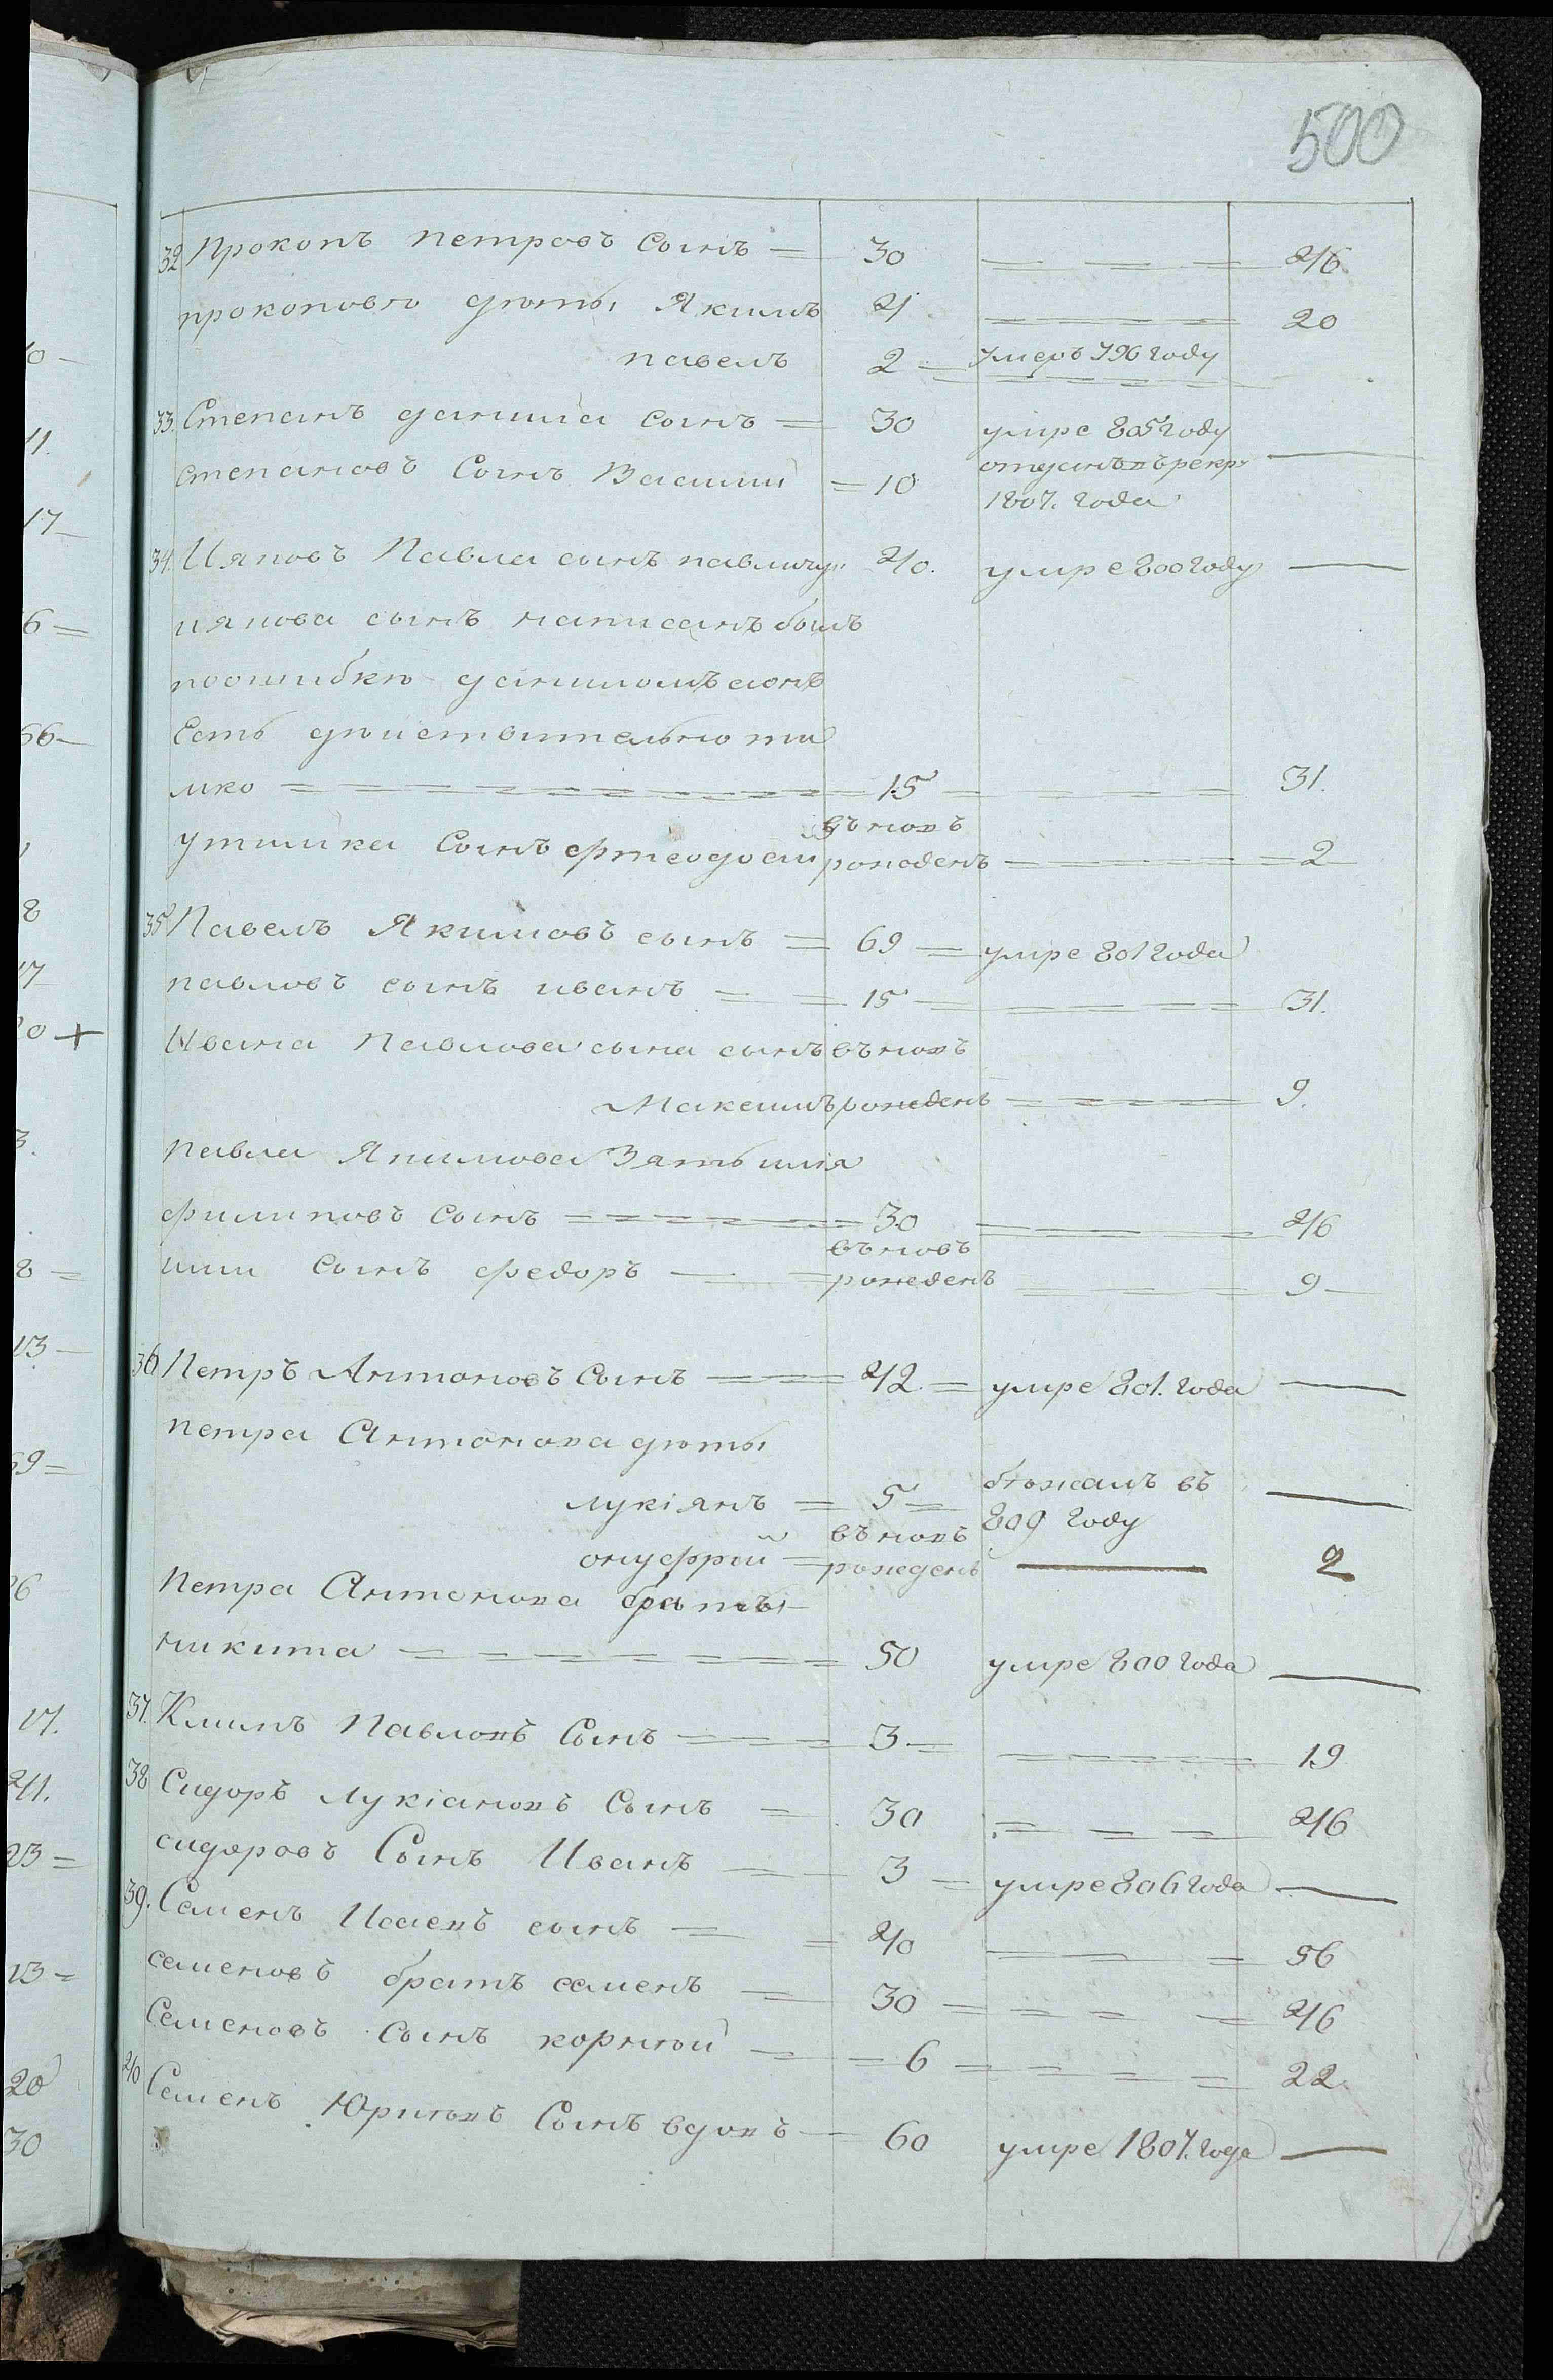 500
32 Прокопъ Петровъ Сынъ = 30 46
прокоповы дѣты Якимъ 4 20
павелъ 2 умеръ 796 году
33. Степанъ данила Сынъ = 30 умре 805 году
степановъ Сынъ Василий = 10 отданъ въ рекр:
1807. года
34. Ияковъ Павла сынъ павличу 40. умре 800 году
иякова сынъ написанъ былъ
поошибкѣ даниломъ а онъ
Есть дѣйствительно ти
мко 15 31.
у тимка Сынъ фтеодосий въновъ рожденъ 2
35 Павелъ Якимовъ сынъ = 69 умре 801 года
павловъ сынъ иванъ 15 31.
Ивана Павлова сына сынъ въновъ
Максимъ рожденъ 9.
Павла Якимова Зять илия
филиповъ Сынъ 30 46
илии Сынъ федоръ въновъ рожденъ 9
36 Петръ Антоновъ Сынъ 42. умре 801. года
петра Антонова дѣты
лукіянъ = 5 бѣжалъ въ
809 году
онуфрій въновъ рожденъ 2
Петра Антонова братъ
никита 50 умре 800 года
37. Климъ Павловъ Сынъ 3 19
38 Сидоръ Лукіановъ Сынъ 30 46
сидоровъ Сынъ Иванъ 3 умре 806 года
39. Семенъ Исаевъ сынъ 40 56
семеновъ братъ семенъ 30 46
Семеновъ Сынъ корнѣй 6 22.
40 Семенъ Юрковъ Сынъ вдовъ 60 умре 1807. года
10
11.
17
6
56
8
17
20 +
3.
8
13
59
26
17.
41.
23
13
20
30